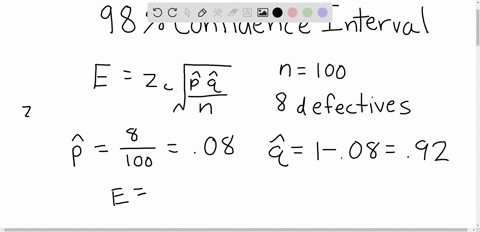 98% Confidence Interval
E = z_c √(p̂ q̂ / n)
n = 100
8 defectives
z
p̂ = 8/100 = .08
q̂ = 1 - .08 = .92
E =